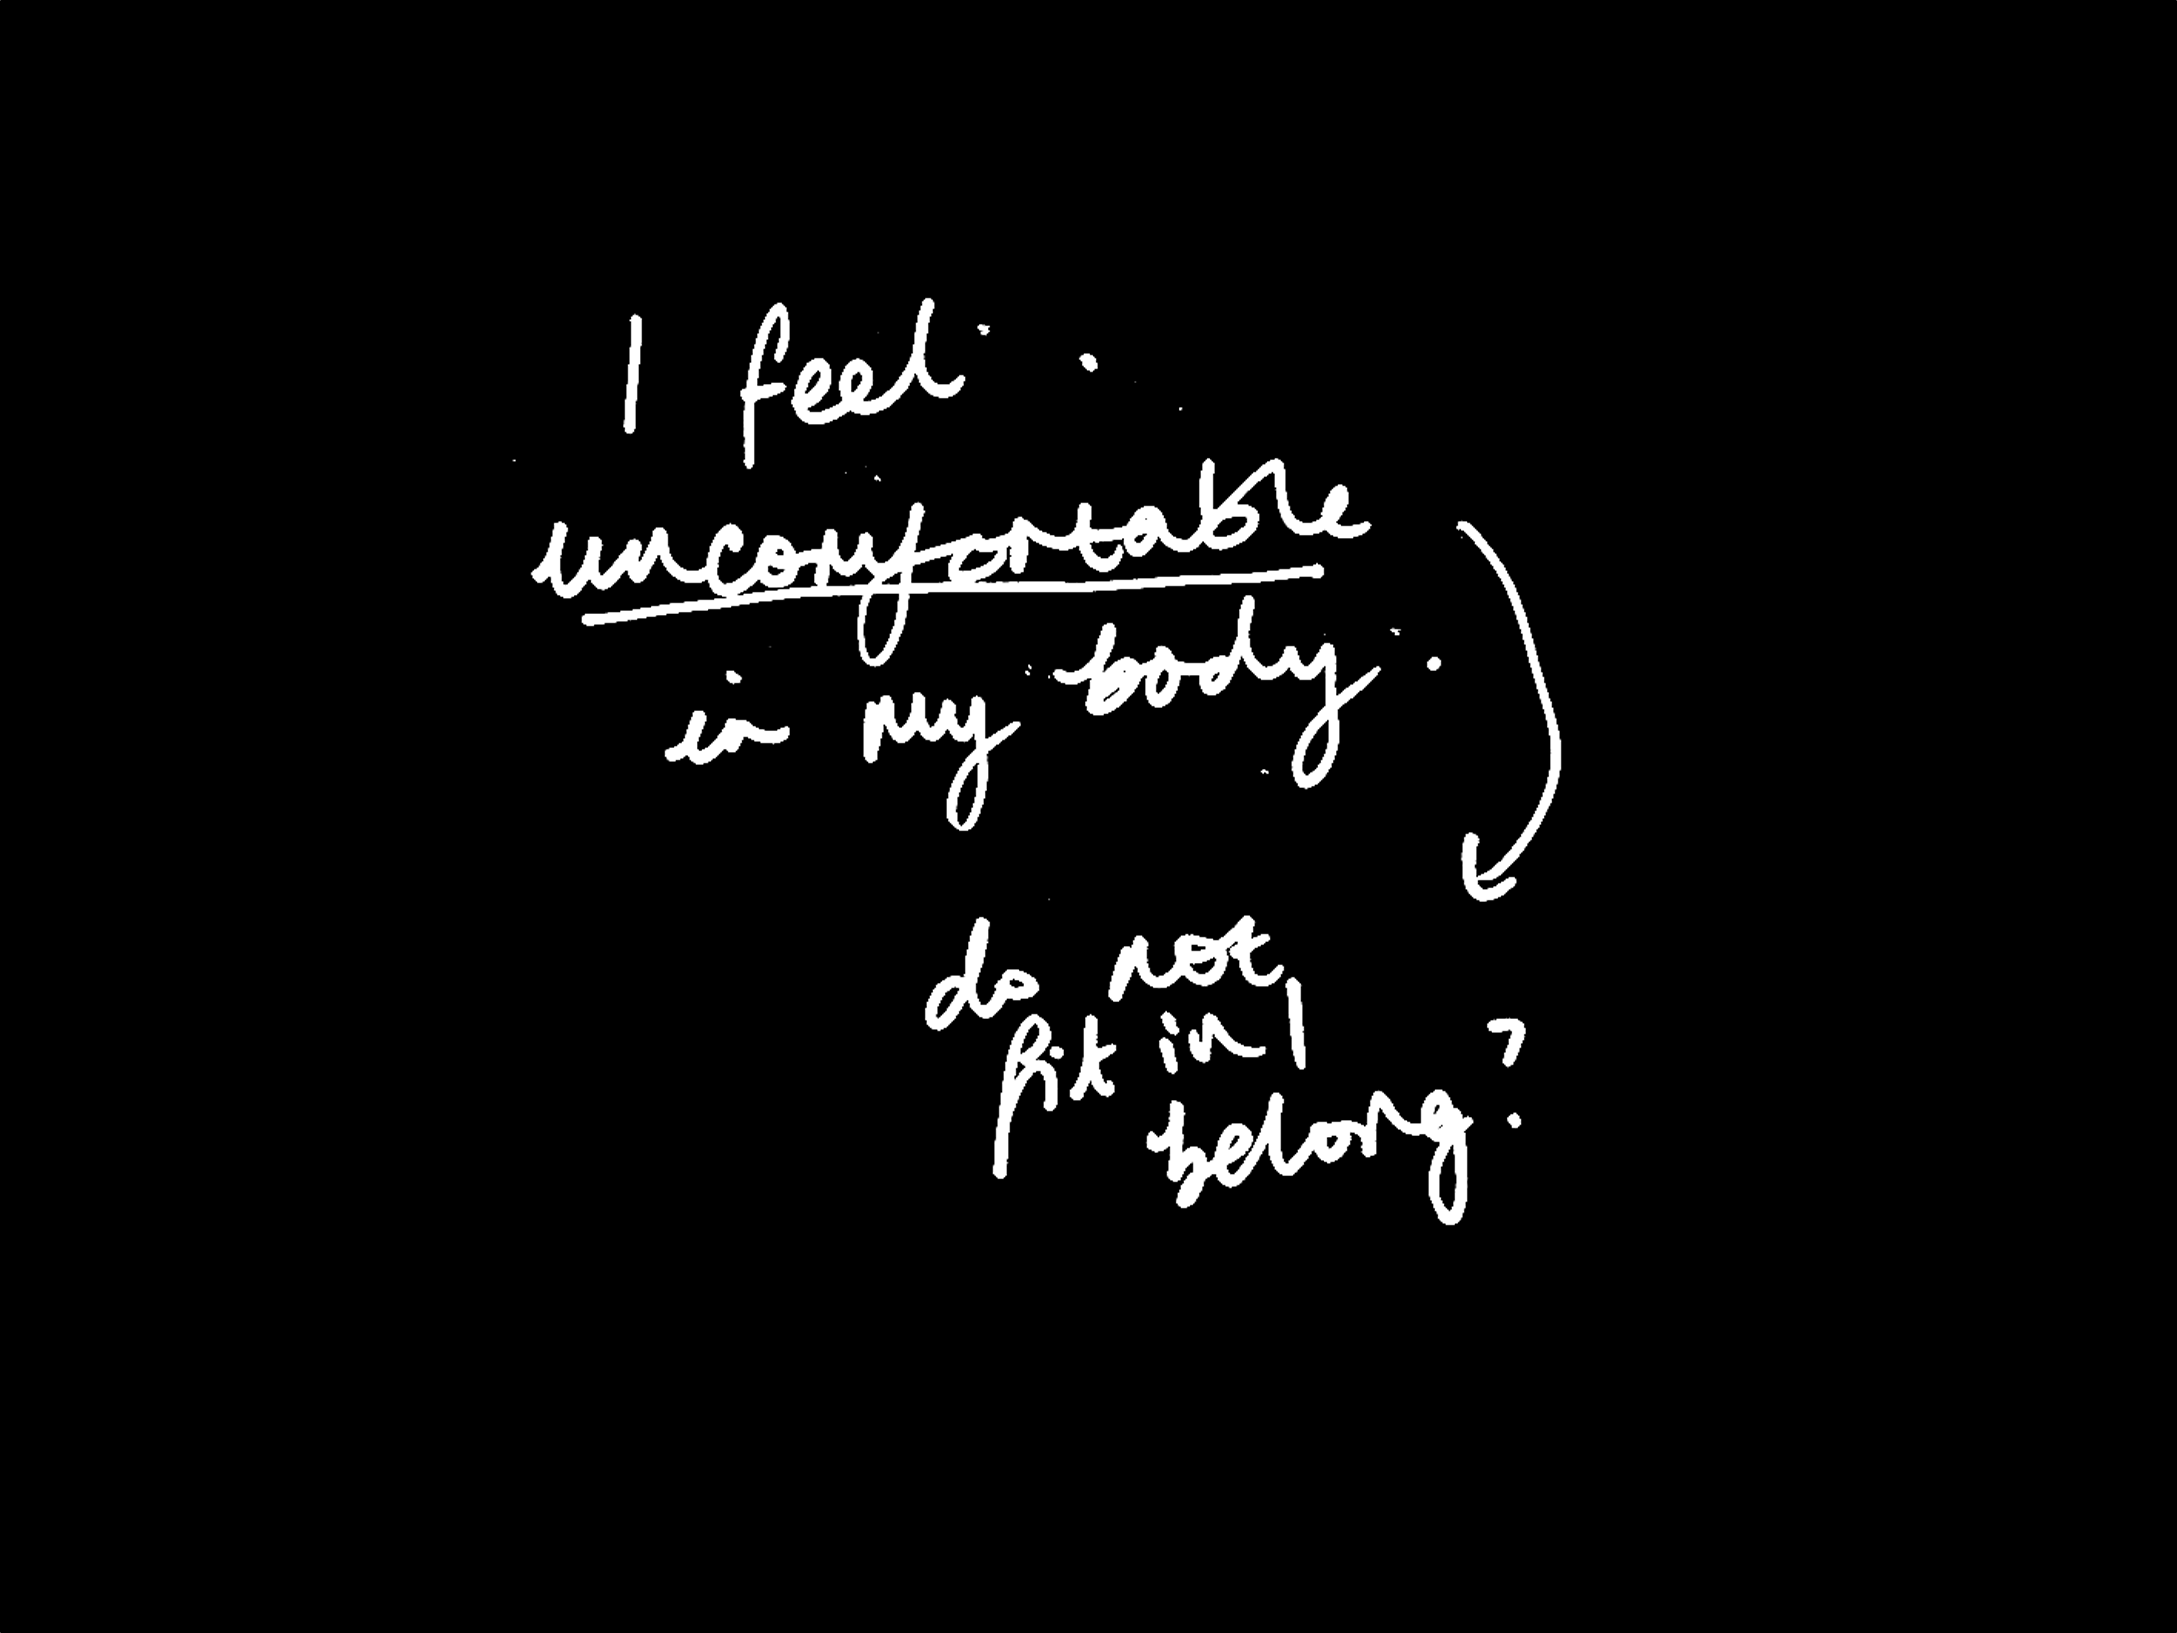 I feel
uncomfortable
in my body.
do not
fit in /
belong?